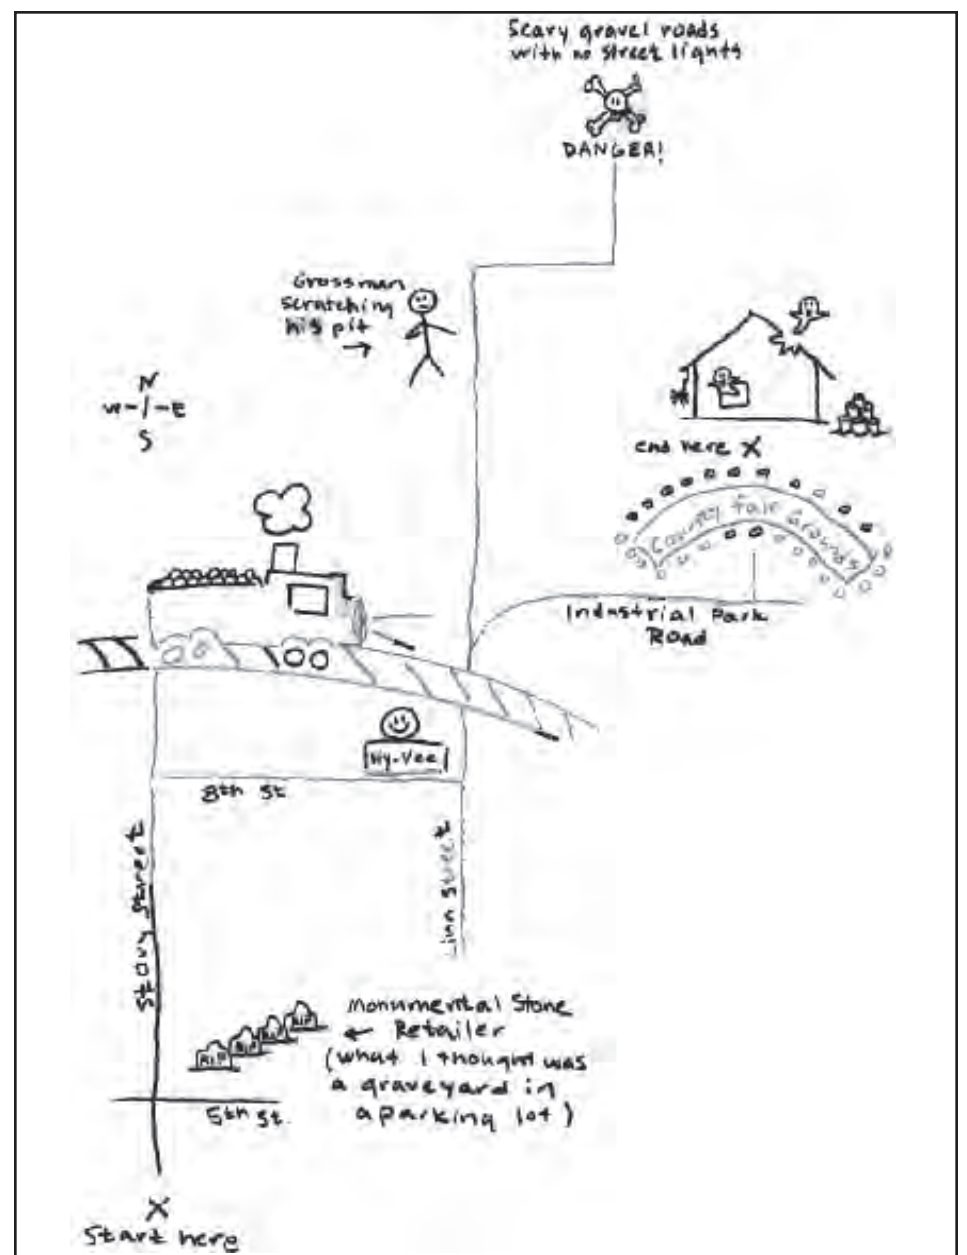 Scary gravel roads
with no street lights
DANGER!
Grossman
scratching
his pit
N
W E
S
end here X
County Fair Grounds
Industrial Park
Road
Hy-Vee
8th St
Story Street
Linn Street
Monumental Stone
Retailer
(what I thought was
a graveyard in
a parking lot)
RIP
RIP
RIP
RIP
5th St.
X
Start here